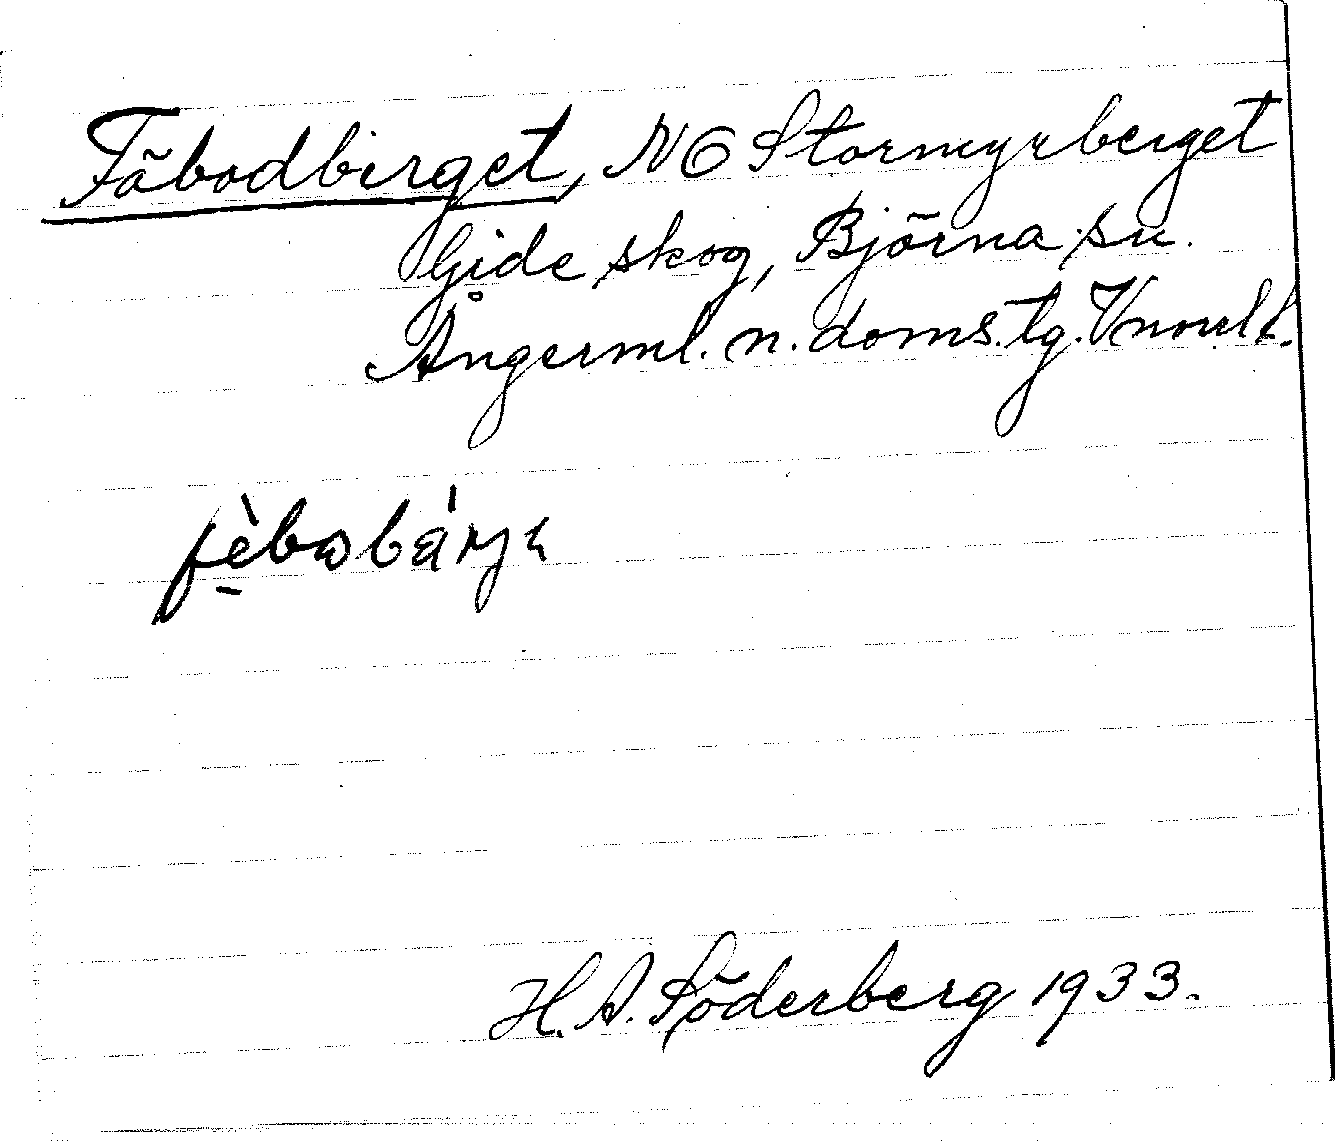 Fäbodberget, NO Stormyrberget
Gide skog, Björna sn.
Ångerml. n. doms. tg. Vnorrl l.
H. A. Söderberg 1933.